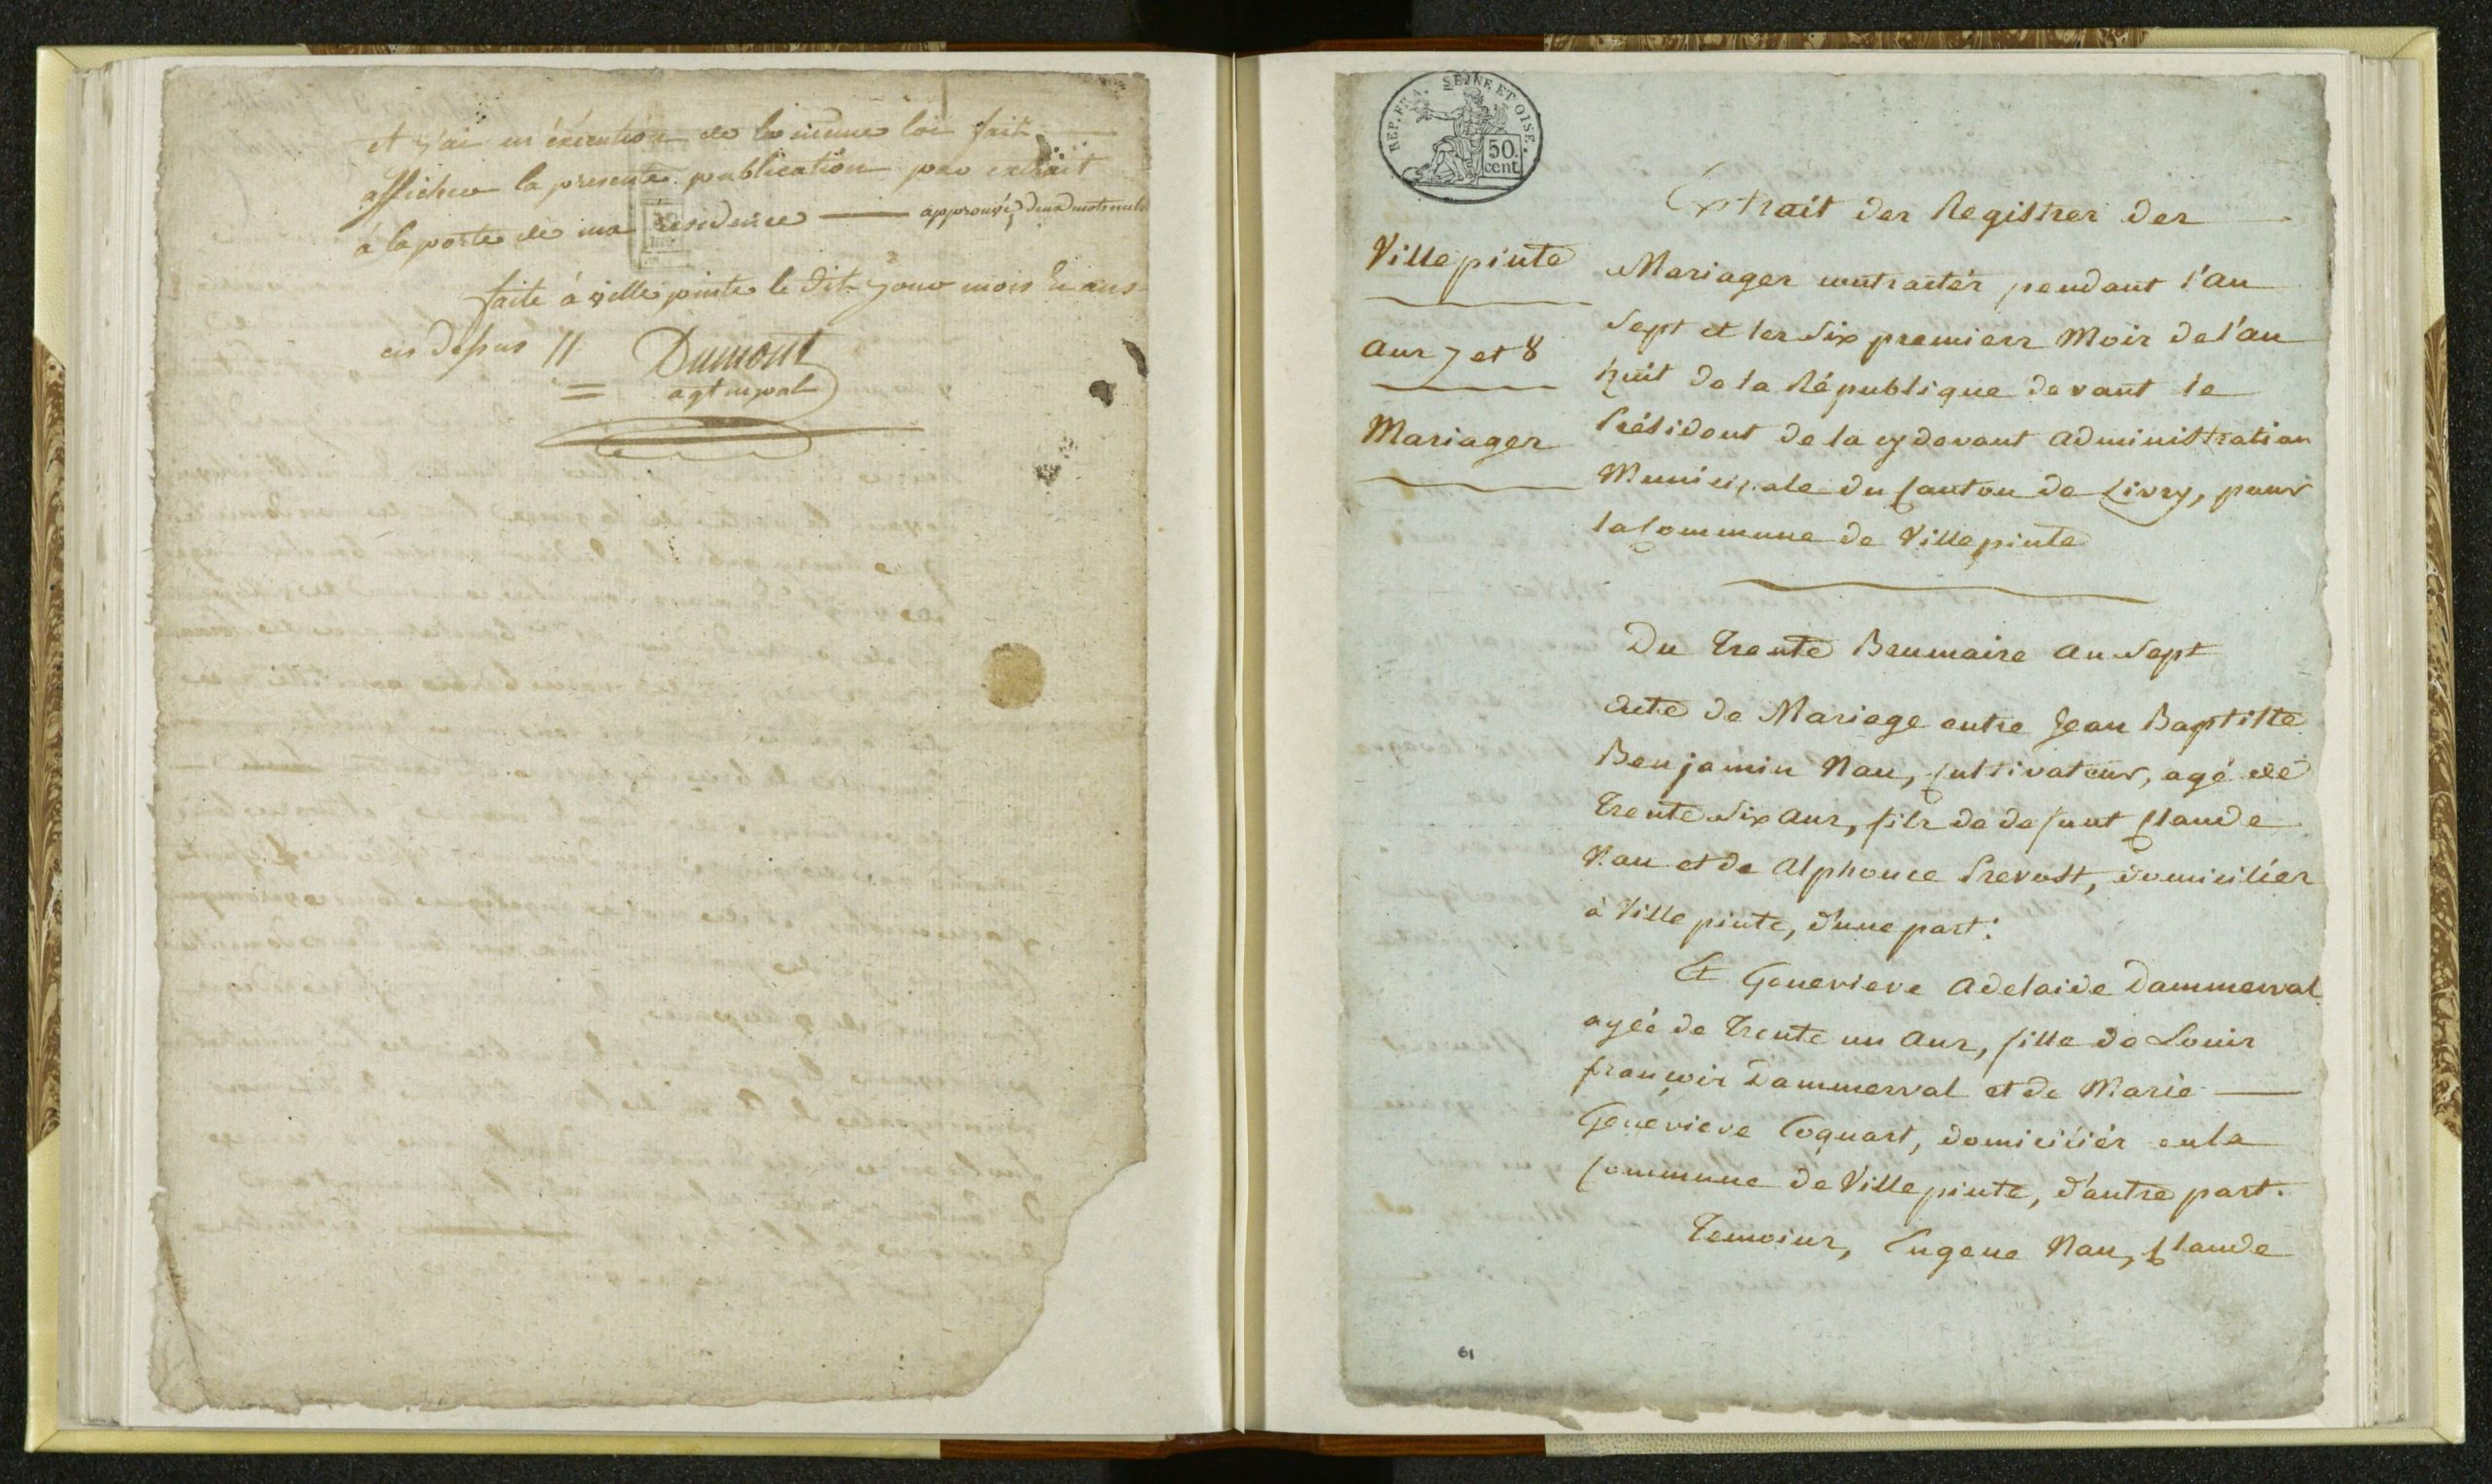 et j'ai en éxécution de la même loi fait
afficher la presente publication par extrait
à la porte de ma résidence — approuvé deux mots nuls
faite à ville pinte le dit jour mois et ans
cis dessus //
Dumont
agt mpal
REP. FRA. SEINE ET OISE.
50. cent
Villepinte
ans 7 et 8
Mariages
Extrait des Registres des
Mariages contractés pendant l'an
Sept et les Six premiers Mois de l'an
huit de la République devant le
Président de la cydevant administration
Municipale du Canton de Livry, pour
la Commune de Villepinte
Du Trente Brumaire an Sept
Acte de Mariage entre Jean Baptiste
Benjamin Nau, Cultivateur, agé de
Trente Six ans, fils de defunt Claude
Nau et de Alphonce Prevost, domiciliés
à Villepinte, d'une part:
Et Genevieve Adelaide Dammerval
agée de Trente un ans, fille de Louis
françois Dammerval et de Marie
Genevieve Coquart, domiciliés en la
Commune de Villepinte, d'autre part.
Temoins, Eugene Nau, Claude
61